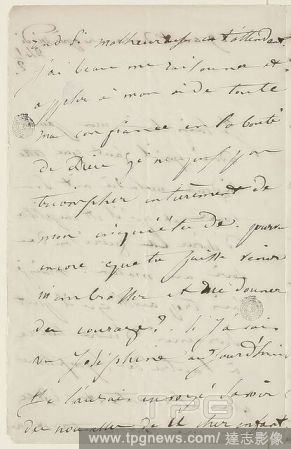 si malheureuse en t'attendant
j'ai beau me raisonner et
appeler à mon aide toute
ma confiance en la bonté
de Dieu je ne puis pas
triompher entièrement de
mon inquiétude
encore que tu puisse venir
m'embrasser et me donner
du courage? Si j'avais
vu Joséphine aujourd'hui
je l'aurais envoyé savoir
des nouvelles de ce cher enfant
TPG
www.tpgnews.com/ 達志影像